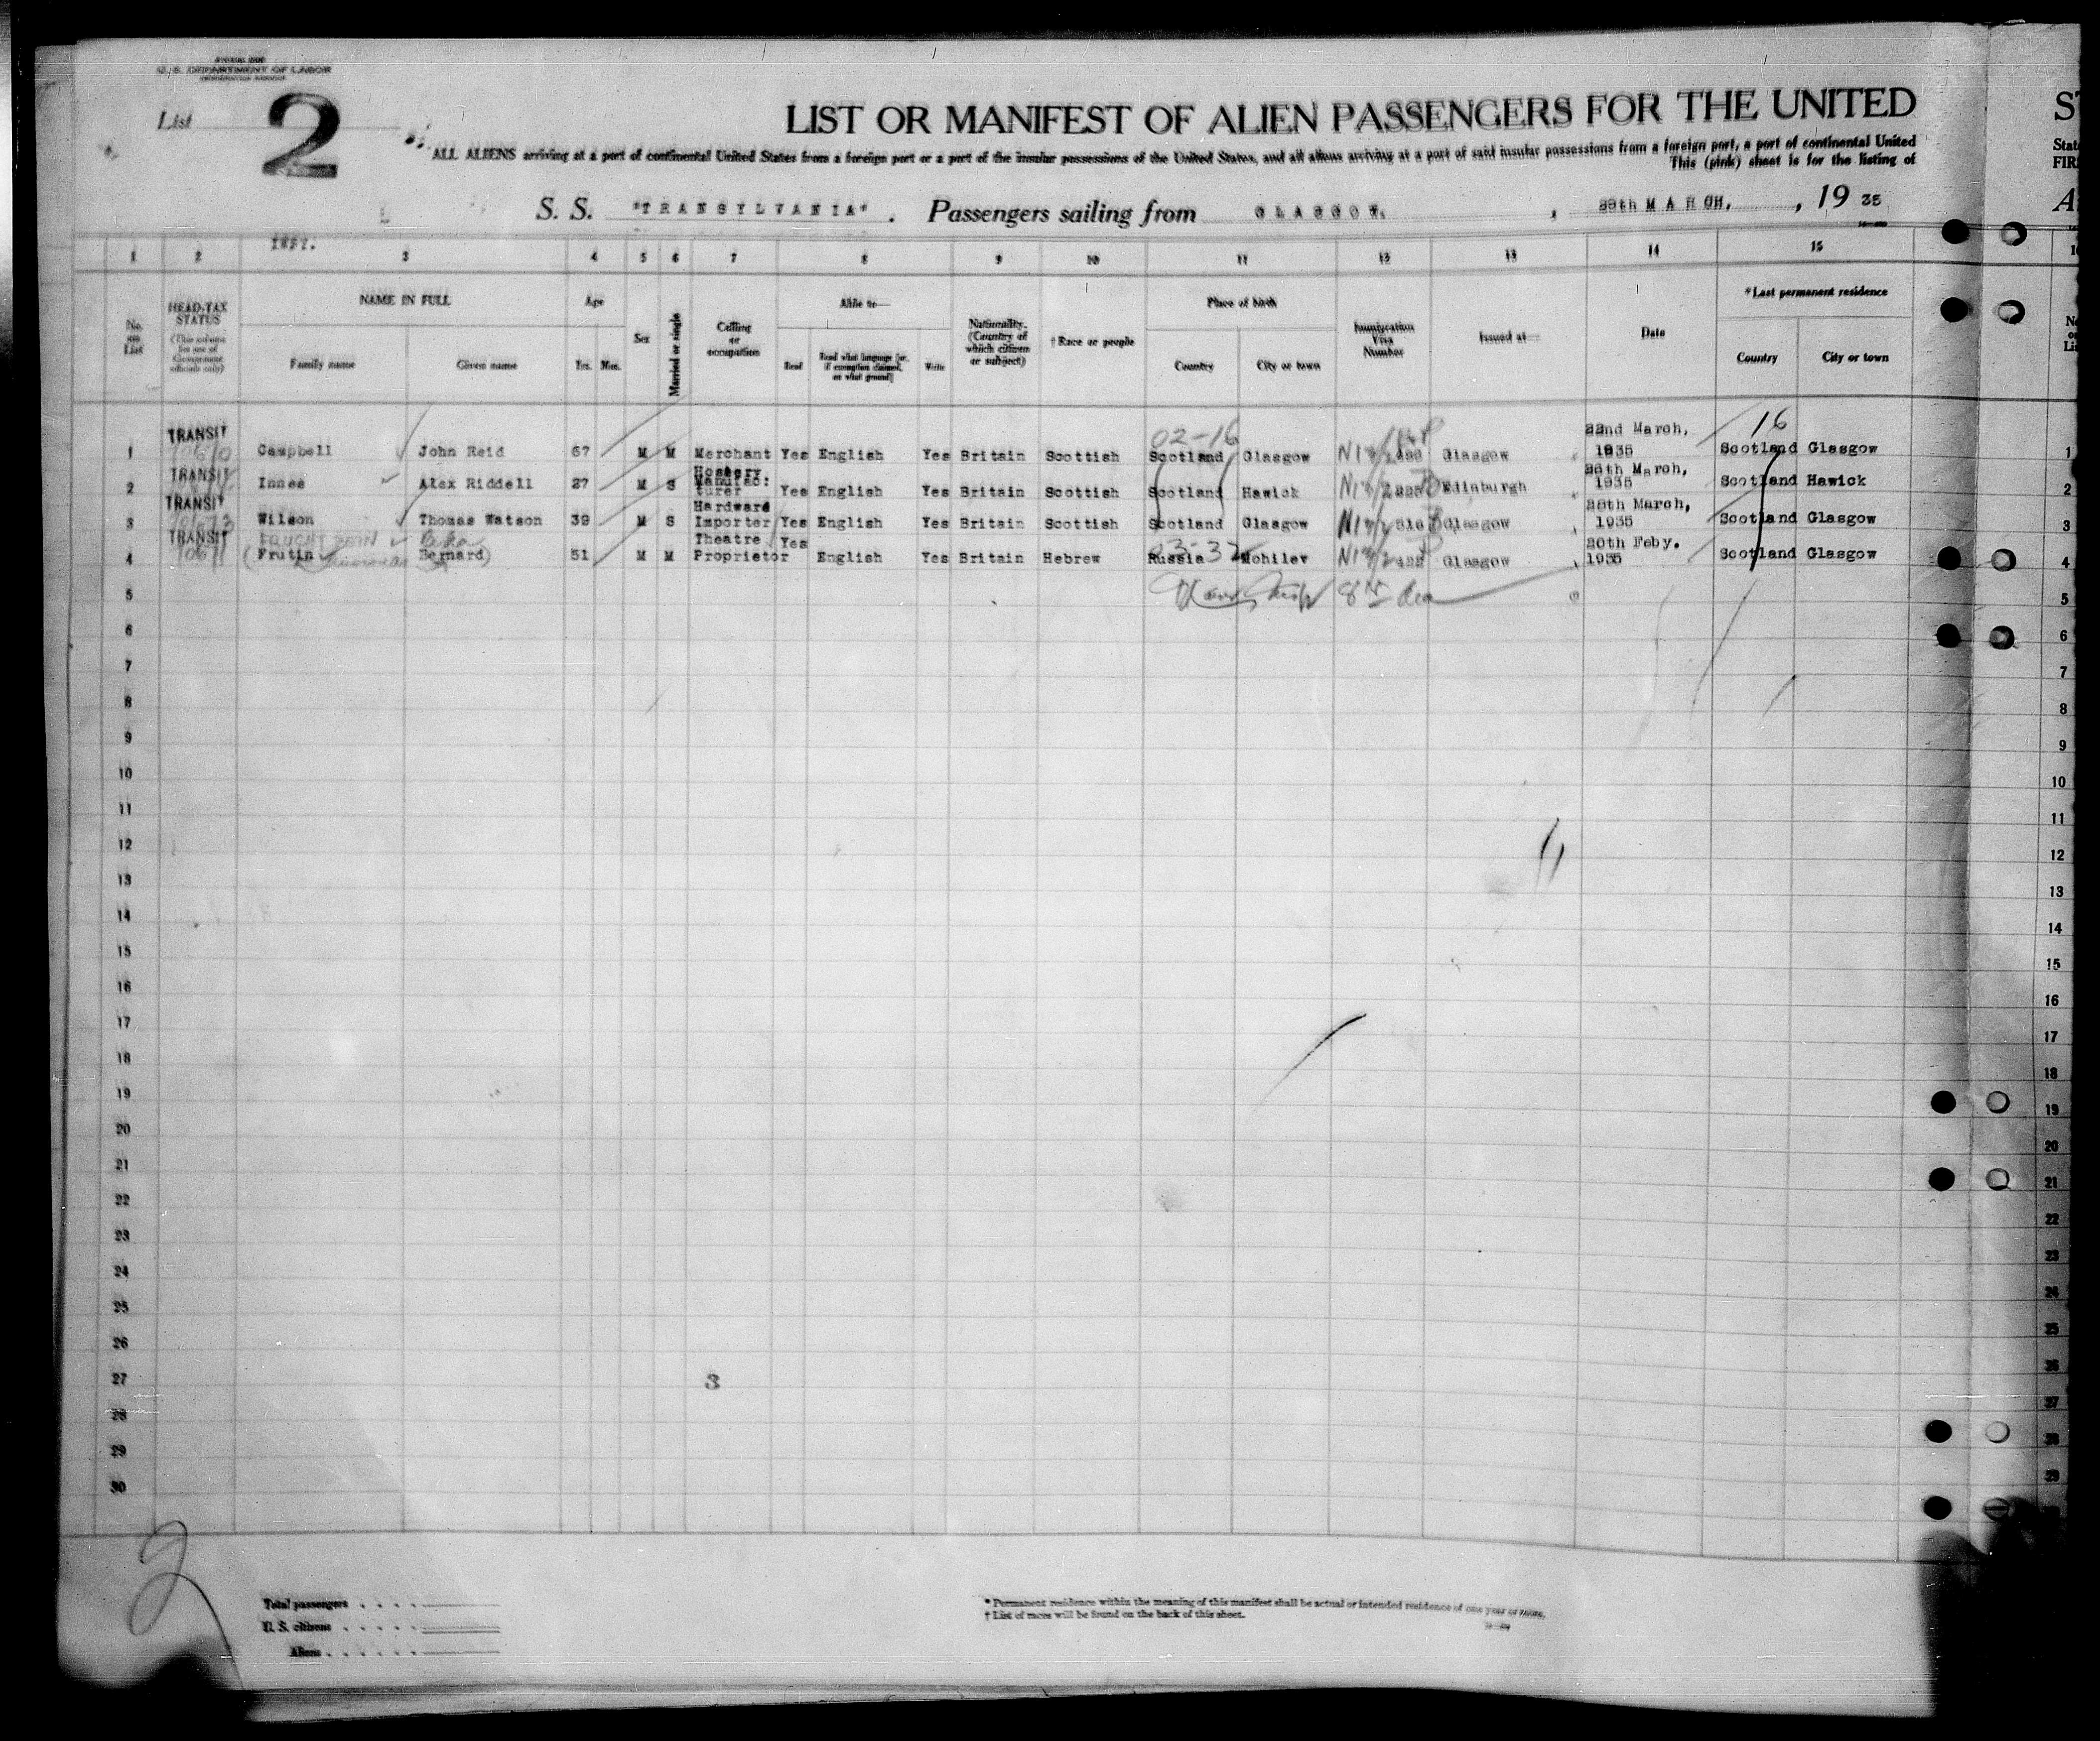 U. S. DEPARTMENT OF LABOR
List 2
LIST OR MANIFEST OF ALIEN PASSENGERS FOR THE UNITED
ST
ALL ALIENS arriving at a port of continental United States from a foreign port or a port of the insular possessions of the United States, and all aliens arriving at a port of said insular possessions from a foreign port, a port of continental United
This (pink) sheet is for the listing of
S. S. "TRANSYLVANIA". Passengers sailing from GLASGOW, MARCH, 1935
1 2 3 4 5 6 7 8 9 10 11 12 13 14 15
No. on List
HEAD-TAX STATUS (This column for use of Government officials only)
NAME IN FULL
Family name Given name
Age
Yrs. Mos.
Sex
Married or single
Calling or occupation
Able to—
Read
Read what language [or, if exemption claimed, on what ground]
Write
Nationality. (Country of which citizen or subject)
† Race or people
Place of birth
Country City or town
Immigration Visa Number
Issued at—
Date
* Last permanent residence
Country City or town
02-16
16
1 TRANSIT Campbell John Reid 57 M M Merchant Yes English Yes Britain Scottish Scotland Glasgow Glasgow 22nd March, 1935 Scotland Glasgow 1
2 TRANSIT Innes Alex Riddell 27 M S Hosiery Manufac: turer Yes English Yes Britain Scottish Scotland Hawick Edinburgh March, 1935 Scotland Hawick 2
3 TRANSIT Wilson Thomas Watson 39 M S Hardware Importer Yes English Yes Britain Scottish Scotland Glasgow Glasgow March, 1935 Scotland Glasgow 3
4 TRANSIT (Frutin Bernard) 51 M M Theatre Proprietor Yes English Yes Britain Hebrew Russia Mohilev Glasgow 20th Feby. 1935 Scotland Glasgow 4
5 5
6 6
7 7
8 8
9 9
10 10
11 11
12 12
13 13
14 14
15 15
16 16
17 17
18 18
19 19
20 20
21 21
22 22
23 23
24 24
25 25
26 26
27 3 27
28 28
29 29
30
2
Total passengers
U. S. citizens
Aliens
* Permanent residence within the meaning of this manifest shall be actual or intended residence of one year or more.
† List of races will be found on the back of this sheet.